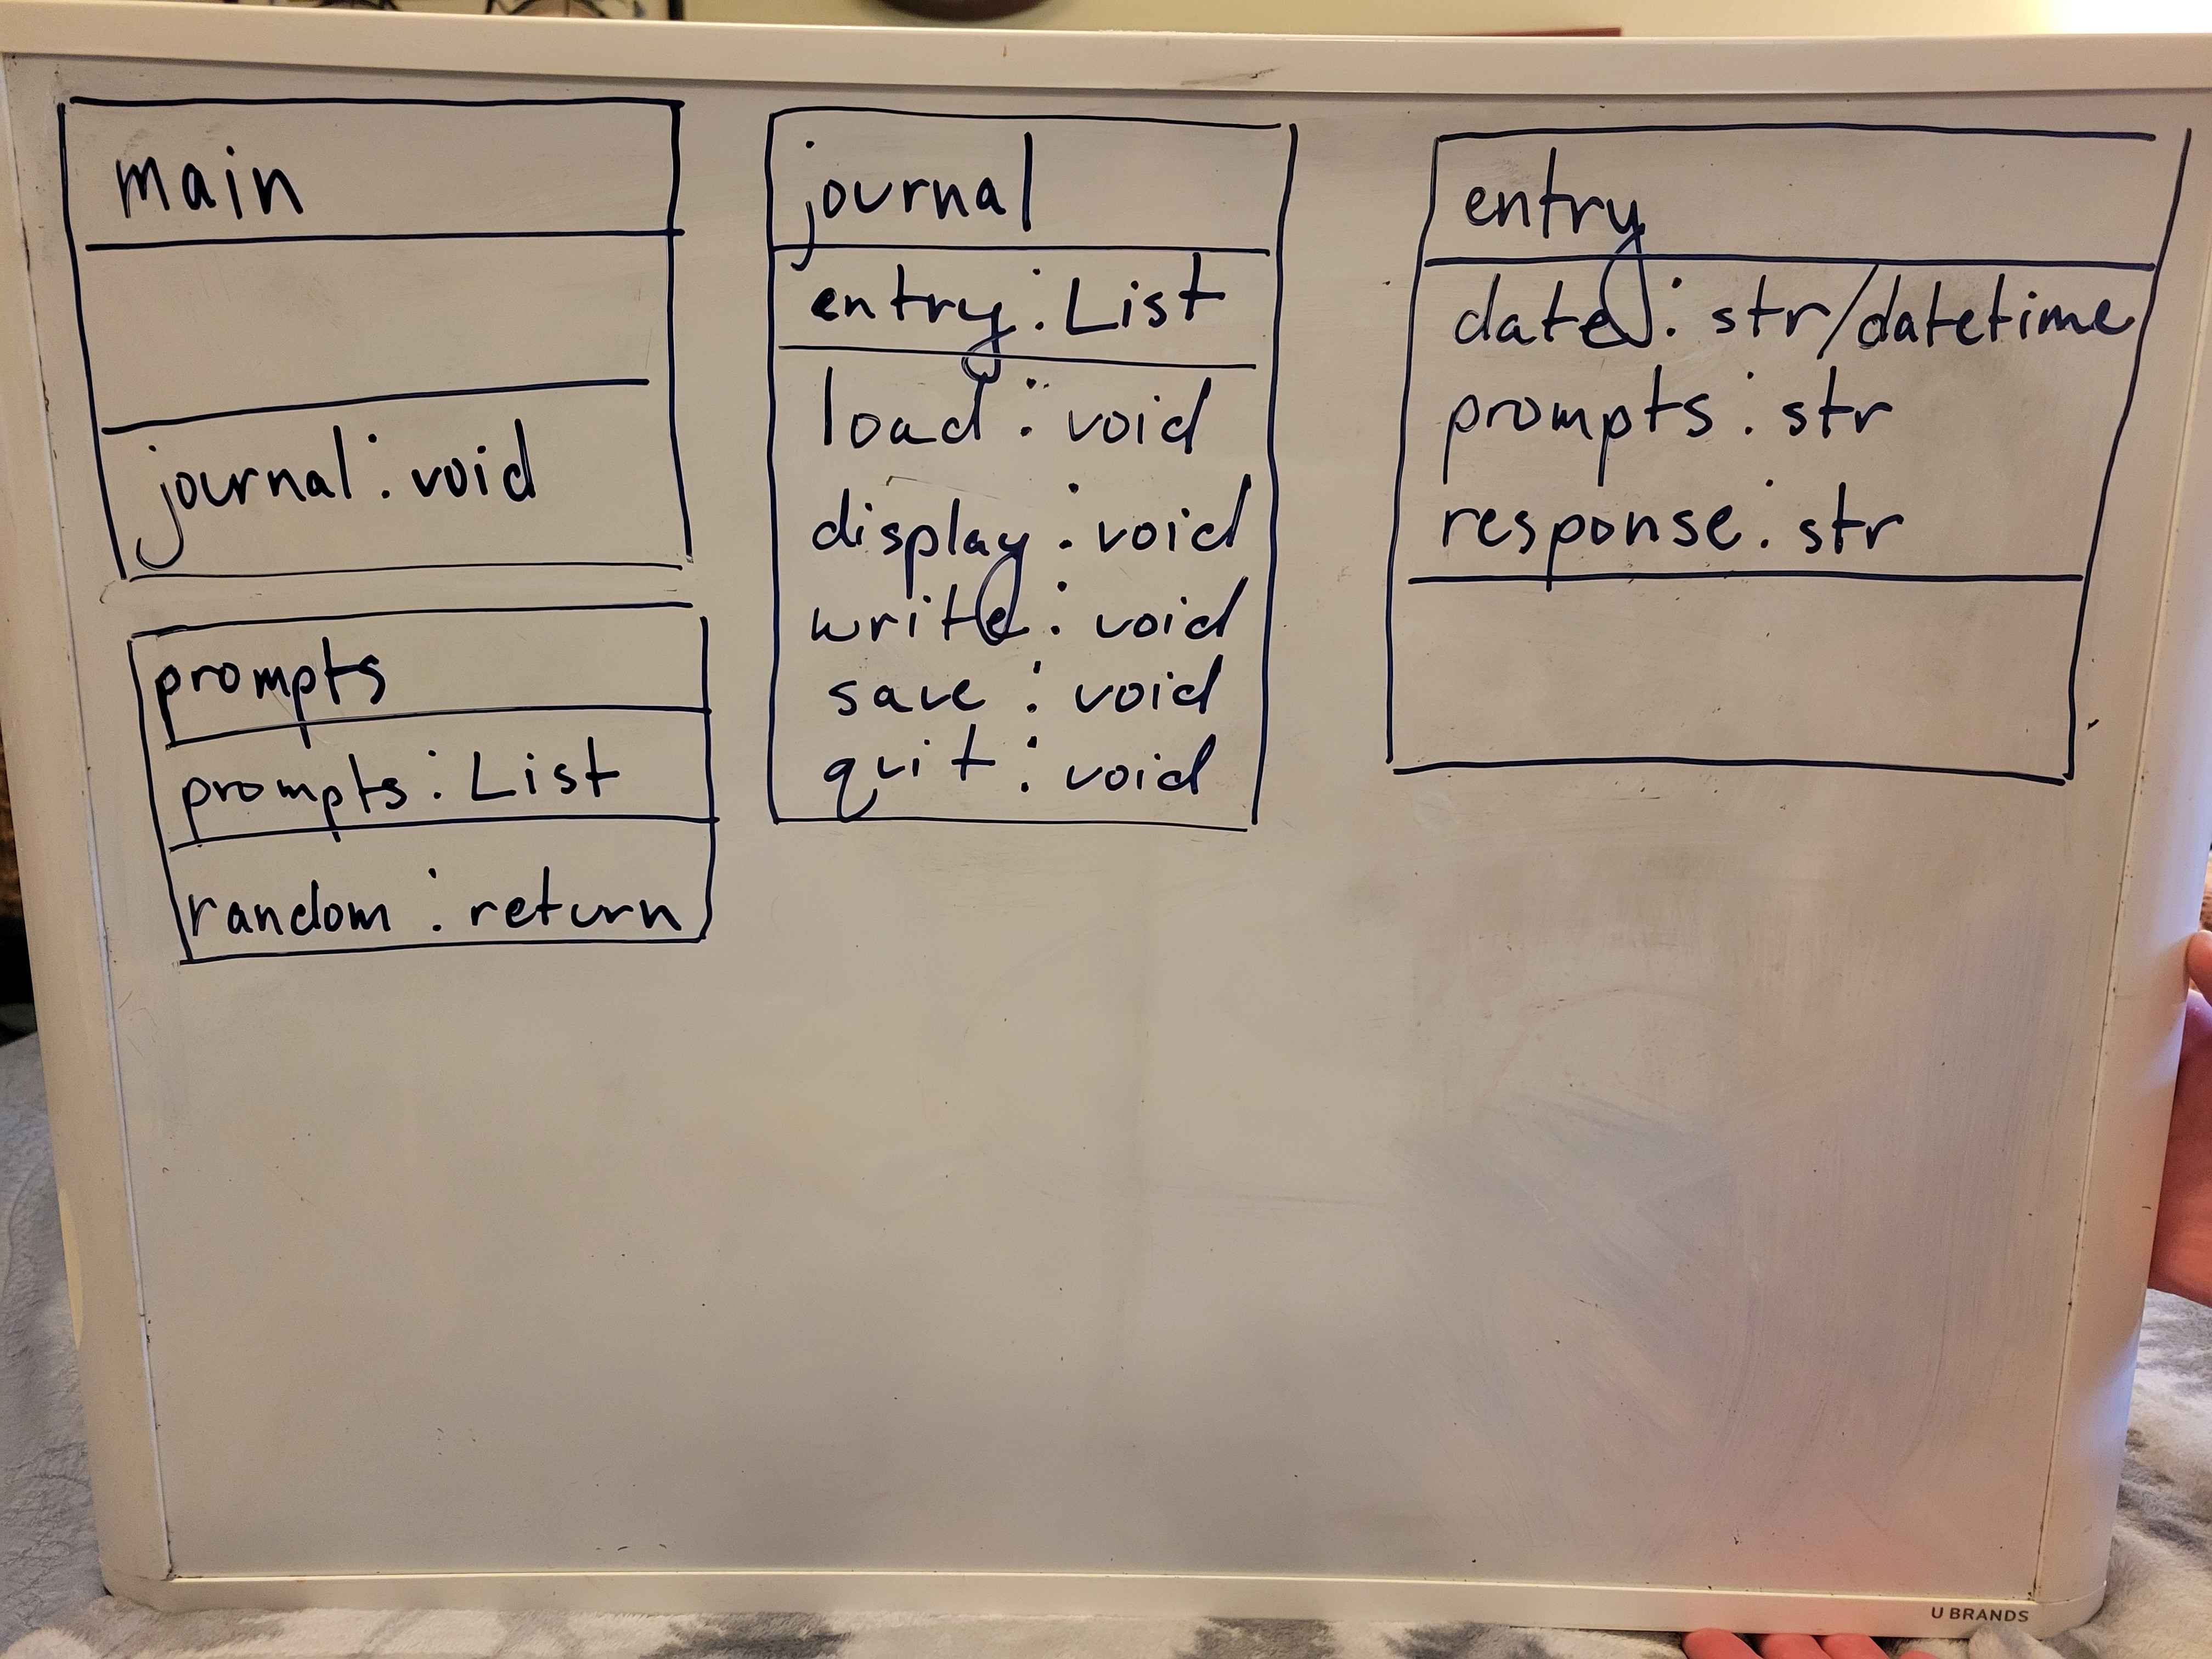 main
journal : void
prompts
prompts : List
random : return
journal
entry : List
load : void
display : void
write : void
save : void
quit : void
entry
date : str/datetime
prompts : str
response : str
U BRANDS